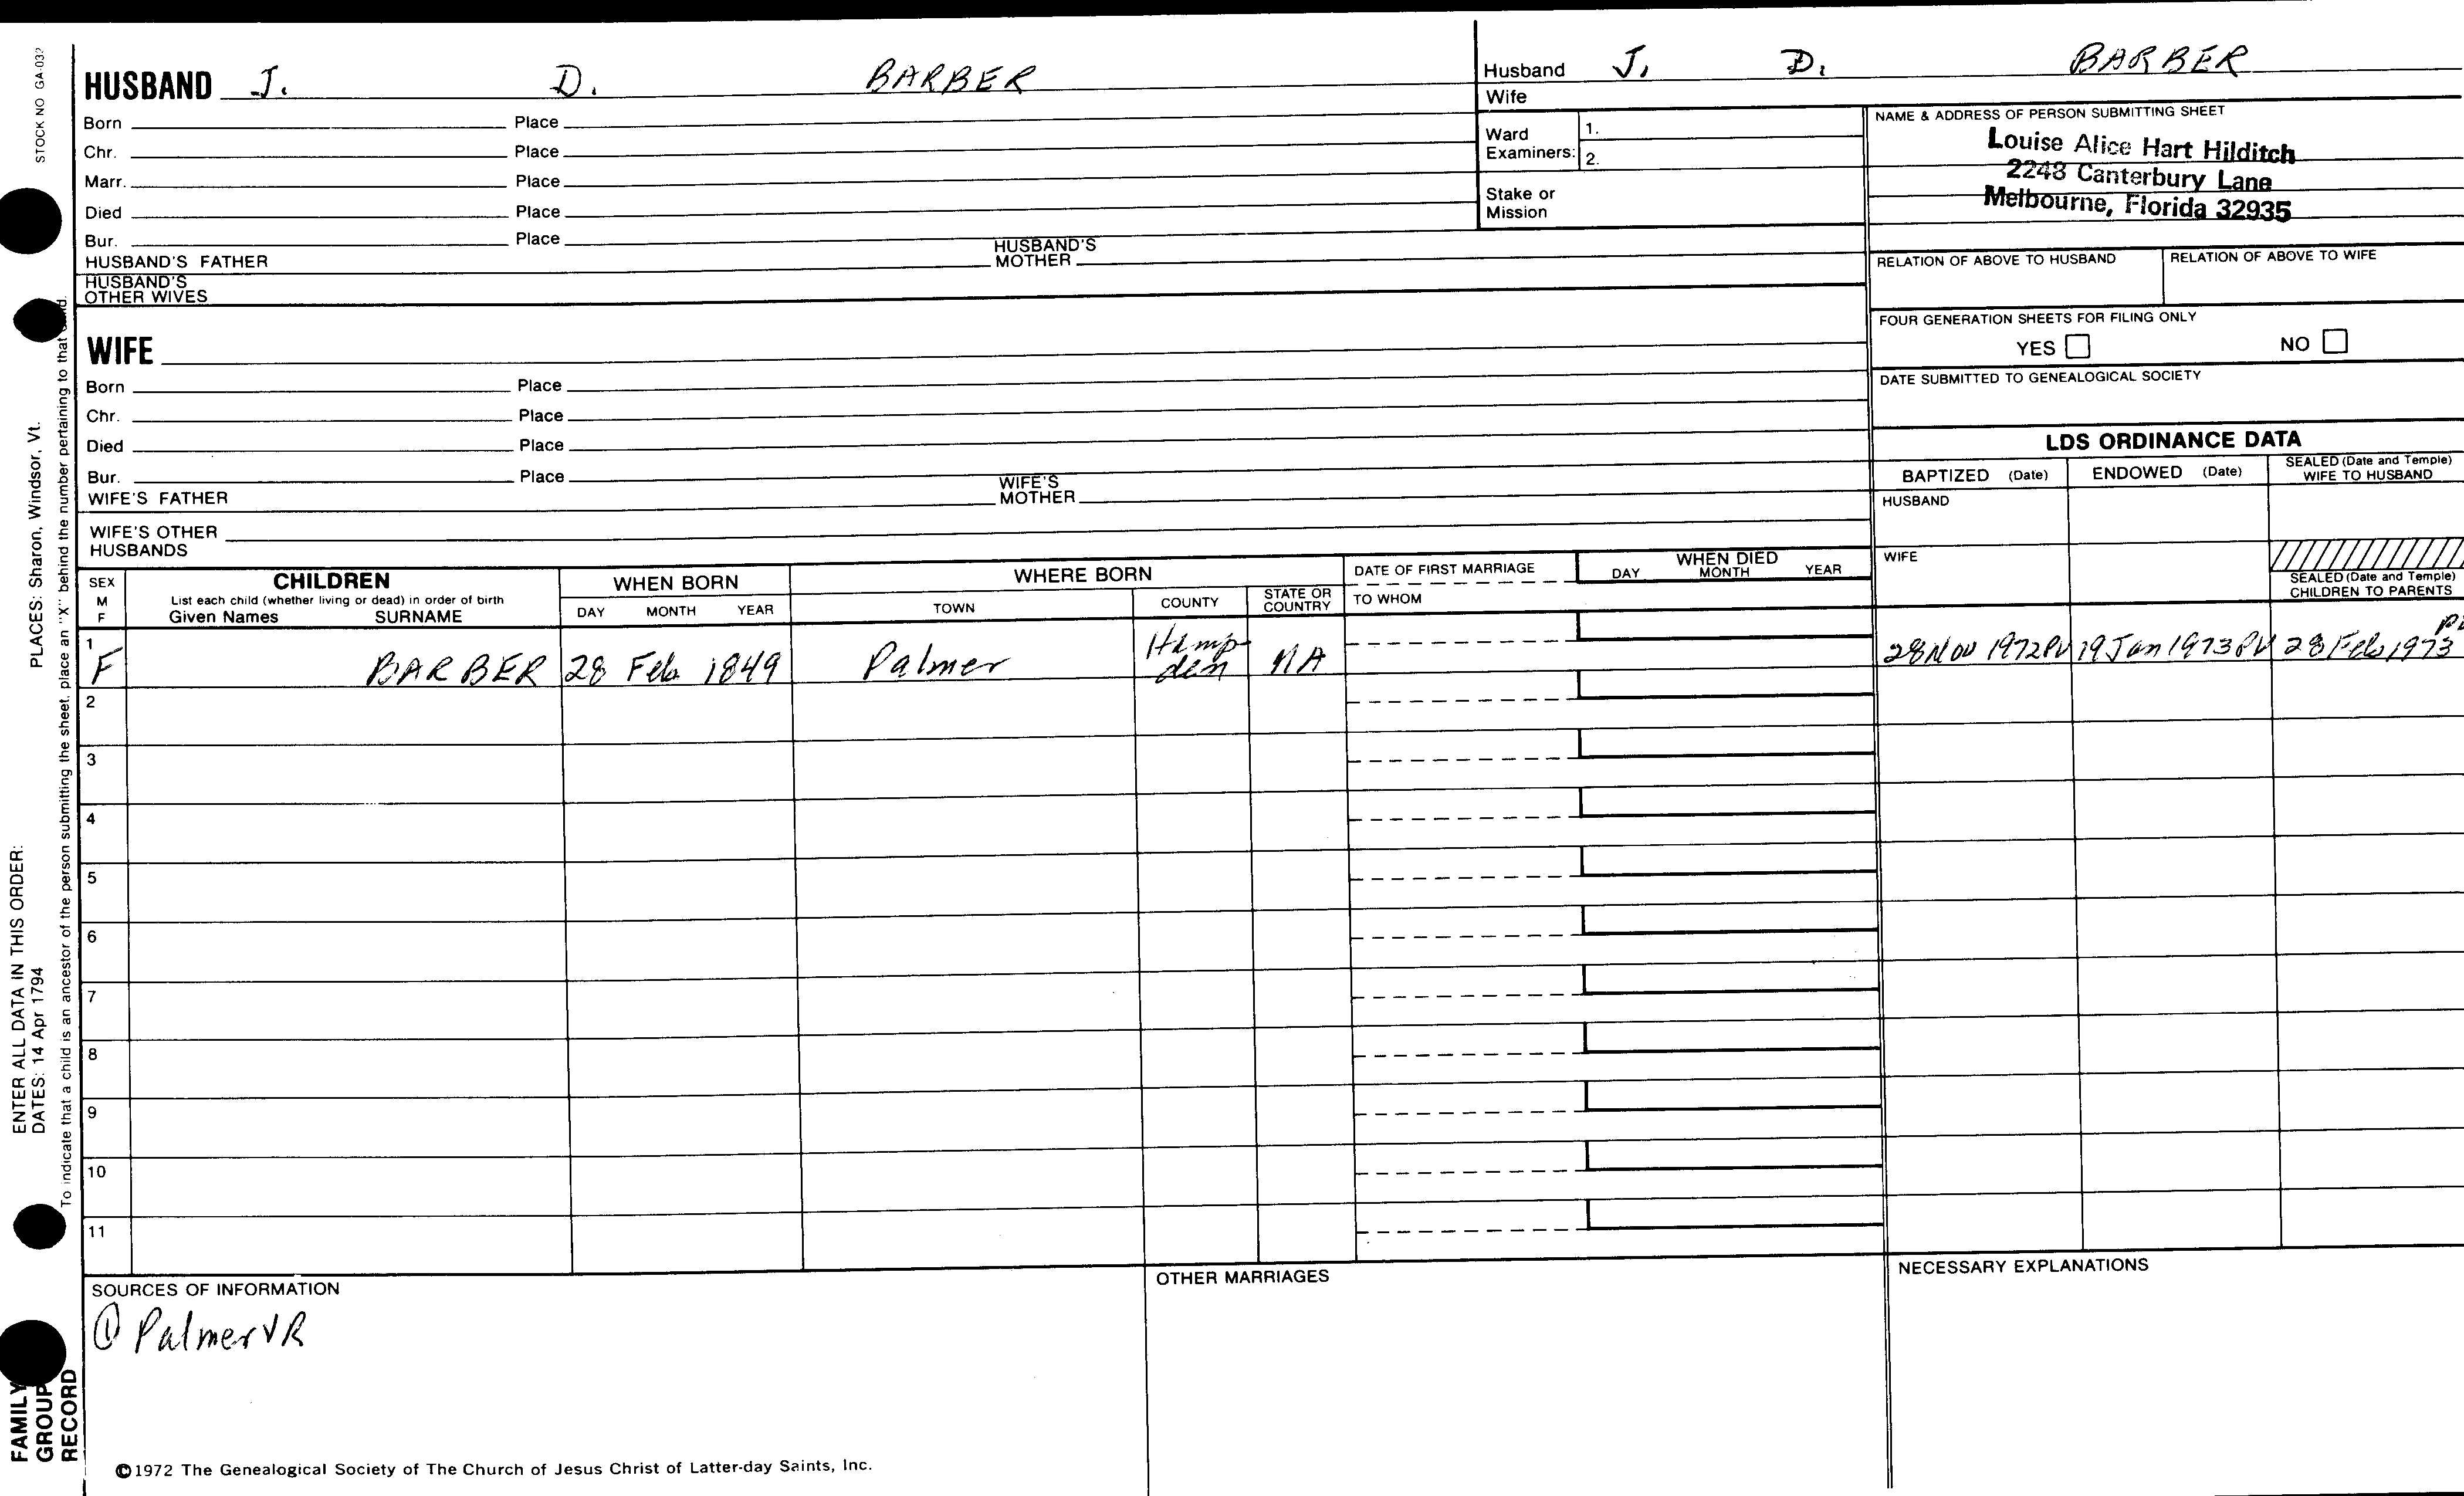 STOCK NO GA-032
HUSBAND J. D. BARBER
Born Place
Chr. Place
Marr. Place
Died Place
Bur. Place
HUSBAND'S FATHER HUSBAND'S MOTHER
HUSBAND'S OTHER WIVES
WIFE
Born Place
Chr. Place
Died Place
Bur. Place
WIFE'S FATHER WIFE'S MOTHER
WIFE'S OTHER HUSBANDS
Husband J. D. BARBER
Wife
Ward Examiners: 1.
2.
Stake or Mission
NAME & ADDRESS OF PERSON SUBMITTING SHEET
Louise Alice Hart Hilditch
2248 Canterbury Lane
Melbourne, Florida 32935
RELATION OF ABOVE TO HUSBAND RELATION OF ABOVE TO WIFE
FOUR GENERATION SHEETS FOR FILING ONLY
YES NO
DATE SUBMITTED TO GENEALOGICAL SOCIETY
LDS ORDINANCE DATA
BAPTIZED (Date) ENDOWED (Date) SEALED (Date and Temple) WIFE TO HUSBAND
HUSBAND
WIFE
SEALED (Date and Temple) CHILDREN TO PARENTS
SEX M F
CHILDREN
List each child (whether living or dead) in order of birth
Given Names SURNAME
WHEN BORN
DAY MONTH YEAR
WHERE BORN
TOWN COUNTY STATE OR COUNTRY
DATE OF FIRST MARRIAGE
TO WHOM
WHEN DIED
DAY MONTH YEAR
1 F BARBER 28 Feb 1849 Palmer Hampden MA 28 Nov 1972 PV 19 Jan 1973 PV 28 Feb 1973
2
3
4
5
6
7
8
9
10
11
SOURCES OF INFORMATION
① Palmer VR
OTHER MARRIAGES
NECESSARY EXPLANATIONS
©1972 The Genealogical Society of The Church of Jesus Christ of Latter-day Saints, Inc.
PLACES: Sharon, Windsor, Vt.
ENTER ALL DATA IN THIS ORDER:
DATES: 14 Apr 1794
To indicate that a child is an ancestor of the person submitting the sheet, place an "X" behind the number pertaining to that
FAMILY
GROUP
RECORD